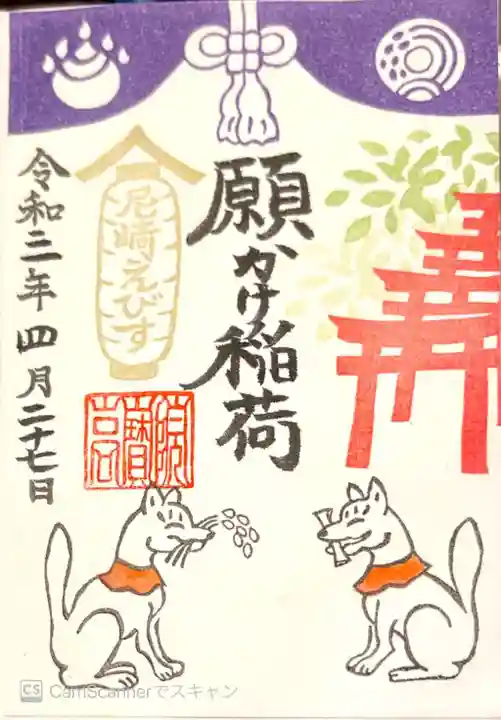 願かけ稲荷
尼崎えびす
令和三年四月二十七日
CS CamScannerでスキャン